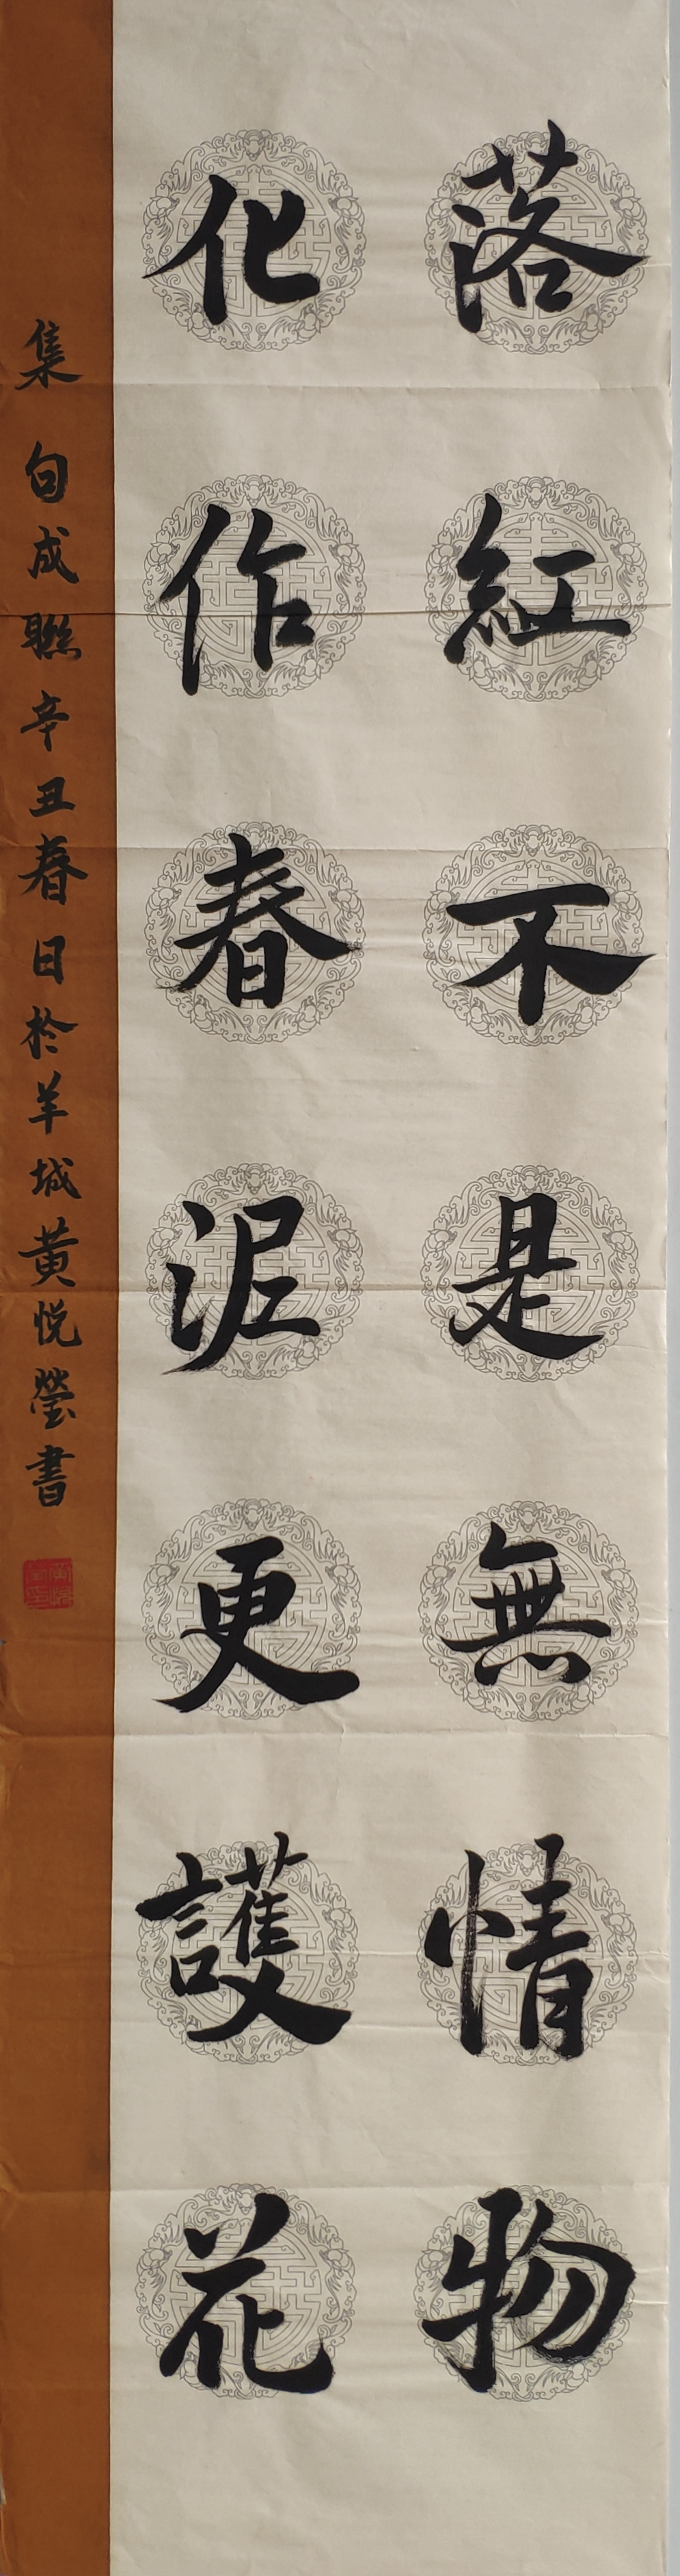 落紅不是無情物
化作春泥更護花
集句成聯辛丑春日於羊城黄悦瑩書